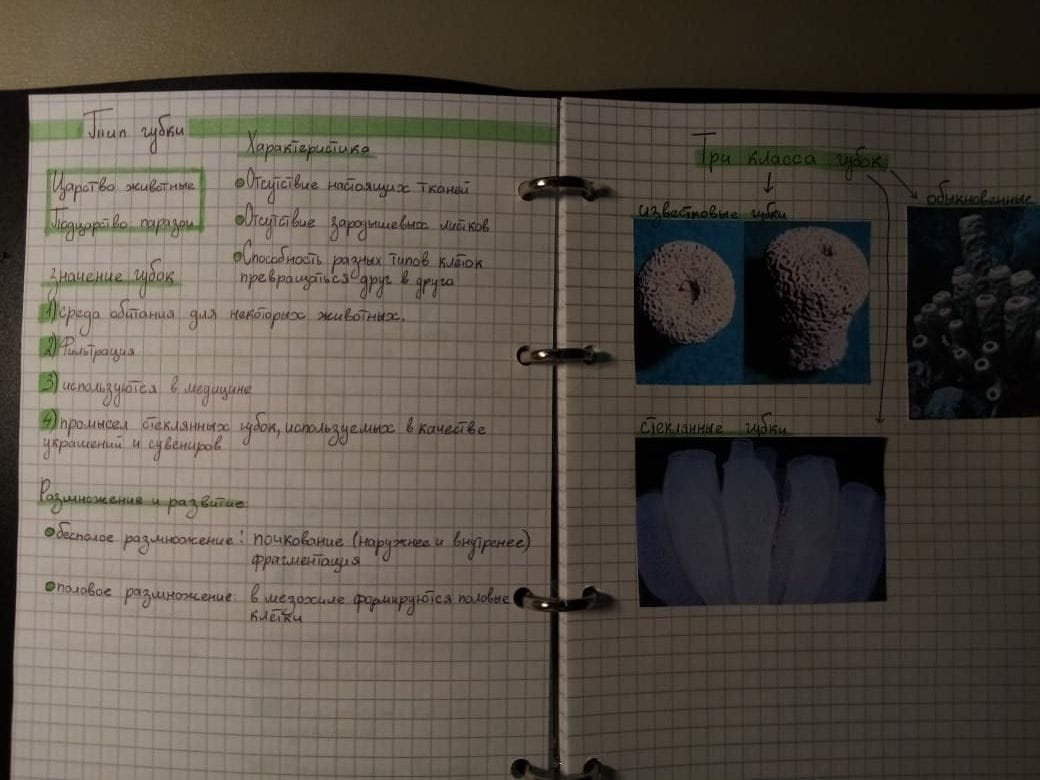 Тип губки
Царство животные
Подцарство паразои
Характеристика
Отсутствие настоящих тканей
Отсутствие зародышевых листков
Способность разных типов клеток
превращаться друг в друга
значение губок
1) среда обитания для некоторых животных.
2) Фильтрация
3) используются в медицине
4) промысел стеклянных губок, используемых в качестве
украшений и сувениров
Размножение и развитие:
бесполое размножение: почкование (наружнее и внутренее)
фрагментация
половое размножение: в мезохиле формируются половые
клетки
Три класса губок
известковые губки
обыкновенные
стеклянные губки